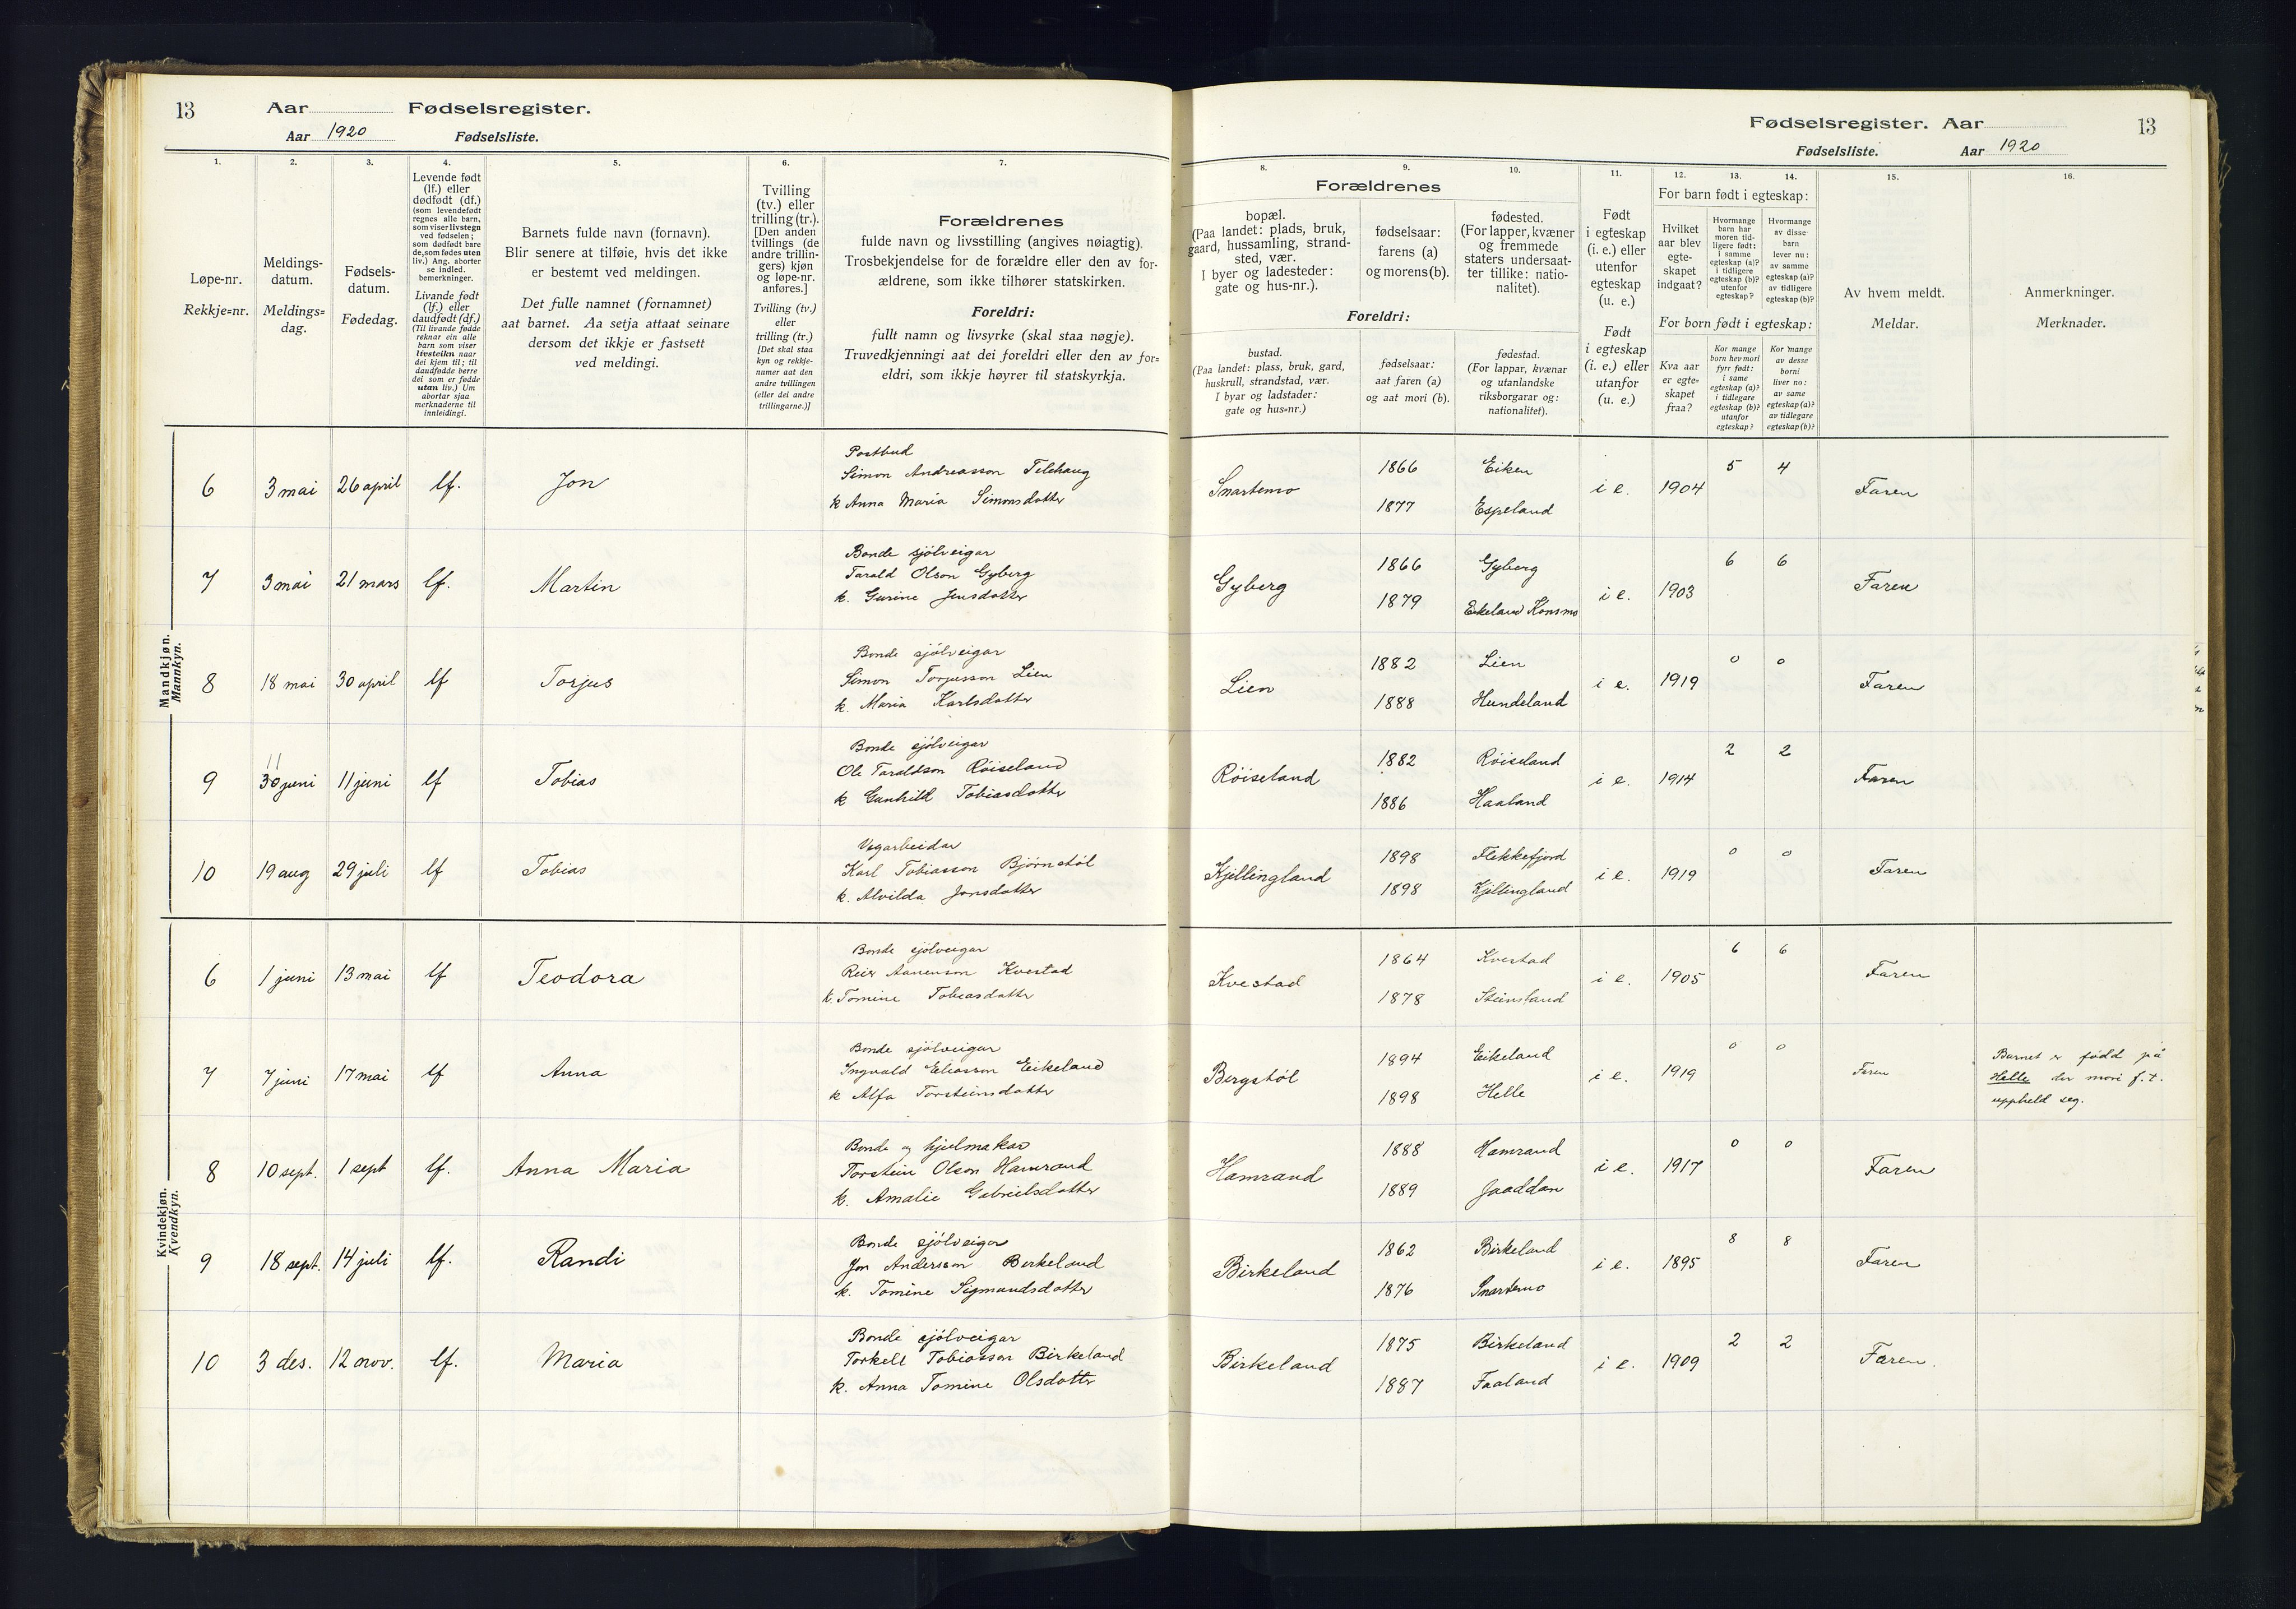 13 Aar Fødselsregister.
Aar 1920 Fødselsliste.
1.
2.
3.
4.
5.
6.
7.
Løpe-nr.
Rekkje=nr.
Meldings-
datum.
Meldings=
dag.
Fødsels-
datum.
Fødedag.
Levende født
(lf.) eller
dødfødt (df.)
(som levendefødt
regnes alle barn,
som viser livstegn
ved fødselen;
som dødfødt bare
de, som fødes uten
liv.) Ang. aborter
se indled.
bemerkninger.
Livande født
(lf.) eller
daudfødt (df.)
(Til livande fødde
reknar ein alle
barn som viser
livsteikn naar
dei kjem til; til
daudfødde berre
dei som er fødde
utan liv.) Um
abortar sjaa
merknaderne til
innleidingi.
Barnets fulde navn (fornavn).
Blir senere at tilføie, hvis det ikke
er bestemt ved meldingen.
Det fulle namnet (fornamnet)
aat barnet. Aa setja attaat seinare
dersom det ikkje er fastsett
ved meldingi.
Tvilling
(tv.) eller
trilling (tr.).
[Den anden
tvillings (de
andre trillin-
gers) kjøn
og løpe-nr.
anføres.]
Tvilling (tv.)
eller
trilling (tr.)
[Det skal staa
kyn og rekkje-
numer aat den
andre tvillingen
(eller dei andre
trillingarne.)]
Forældrenes
fulde navn og livsstilling (angives nøiagtig).
Trosbekjendelse for de forældre eller den av for-
ældrene, som ikke tilhører statskirken.
Foreldri:
fullt namn og livsyrke (skal staa nøgje).
Truvedkjenningi aat dei foreldri eller den av for=
eldri, som ikkje høyrer til statskyrkja.
Fødselsregister. Aar 13
Fødselsliste. Aar 1920
8.
9.
10.
11.
12.
13.
14.
15.
16.
Forældrenes
bopæl.
(Paa landet: plads, bruk,
gaard, hussamling, strand-
sted, vær.
I byer og ladesteder:
gate og hus-nr.).
fødselsaar:
farens (a)
og morens (b).
fødested.
(For lapper, kvæner
og fremmede
staters undersaat-
ter tillike: natio-
nalitet).
Foreldri:
bustad.
(Paa landet: plass, bruk, gard,
huskrull, strandstad, vær.
I byar og ladstader:
gate og hus=nr.)
fødselsaar:
aat faren (a)
og aat mori (b).
fødestad.
(For lappar, kvænar
og utanlandske
riksborgarar og:
nationalitet).
Født
i egteskap
(i. e.) eller
utenfor
egteskap
(u. e.)
Født
i egteskap
(i. e.) eller
utanfor
(u. e.)
For barn født i egteskap:
Hvilket
aar blev
egte-
skapet
indgaat?
Hvormange
barn har
moren tid-
ligere født:
i samme
egteskap (a)?
i tidligere
egteskap (b)?
utenfor
egteskap?
Hvormange
av disse
barn
lever nu:
av samme
egteskap (a)?
av tidligere
egteskap (b)?
For born født i egteskap:
Kva aar
er egte=
skapet
fraa?
Kor mange
born hev mori
fyrr født:
i same
egteskap (a)?
i tidlegare
egteskap (b)?
utanfor
egteskap?
Kor mange
av desse
borni
liver no:
av same
egteskap (a)?
av tidlegare
egteskap (b)?
Av hvem meldt.
Meldar.
Anmerkninger.
Merknader.
Mandkjøn.
Mannkyn.
6 3 mai 26 april lf. Jon
Postbud
Simon Andreasson
k Anna Maria Simonsdotter
Snartemo 1866 Eiken i e. 1904 5 4 Faren
1877 Espeland
7 3 mai 21 mars lf. Martin
Bonde sjölveigar
Tarald Olson Gyberg
k. Gurine Jensdotter
Gyberg 1866 Gyberg i e. 1903 6 6 Faren
1879 Eikeland Konsmo
8 18 mai 30 april lf Torjus
Bonde sjölveigar
Simon Torjusson Lien
k. Maria Karlsdotter
Lien 1882 Lien i e. 1919 0 0 Faren
1888 Hundeland
9 30 juni 11 juni lf Tobias
11
Bonde sjölveigar
Ole Taraldson Röiseland
k Gunhild Tobiasdotter
Röiseland 1882 Röiseland i e. 1914 2 2 Faren
1886 Haaland
10 19 aug 29 juli lf Tobias
Vegarbeidar
Karl Tobiasson Bjørnstöl
k. Alvilda Jonsdotter
Kjellingland 1898 Flekkefjord i e. 1919 0 0 Faren
1898 Kjellingland
Kvindekjøn.
Kvendkyn.
6 1 juni 13 mai lf Teodora
Bonde sjölveigar
Reier Aanenson Kvestad
k. Tomine Tobiasdotter
Kvestad 1864 Kvestad i e. 1905 6 6 Faren
1878 Steinsland
7 7 juni 17 mai lf Anna
Bonde sjölveigar
Ingvald Eliasson Eikeland
k Alfa Torsteinsdotter
Bergstöl 1894 Eikeland i e. 1919 0 0 Faren
1898 Helle
Barnet er född på
Helle der mori f.t.
uppheld seg.
8 10 sept. 1 sept lf. Anna Maria
Bonde og hjulmakar
Torstein Olson Hamrand
k. Amalie Gabrielsdotter
Hamrand 1888 Hamrand i e. 1917 0 0 Faren
1889 Jaaddan
9 18 sept. 14 juli lf. Randi
Bonde sjölveigar
Jon Andersson Birkeland
k. Tomine Sigmundsdotter
Birkeland 1862 Birkeland i e. 1895 8 8 Faren
1876 Snartemo
10 3 des. 12 nov. lf. Maria
Bonde sjölveigar
Torkell Tobiasson Birkeland
k. Anna Tomine Olsdotter
Birkeland 1875 Birkeland i e. 1909 2 2 Faren.
1887 Faaland